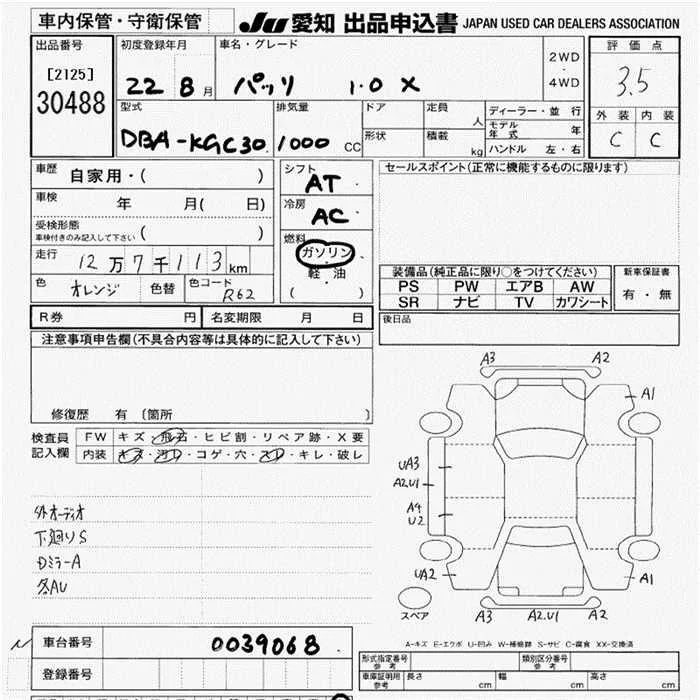 車内保管・守衛保管 JU 愛知 出品申込書 JAPAN USED CAR DEALERS ASSOCIATION
出品番号 初度登録年月 車名・グレード 2WD・4WD 評価点
[2125] 22 8月 パッソ 1.0 X 3.5
30488
型式 排気量 ドア 定員 人 ディーラー・並行 外装 内装
DBA-KGC30 1000 CC 形状 積載 kg モデル年式 年 C C
ハンドル 左・右
車歴 自家用・( ) シフト AT セールスポイント(正常に機能するものに限ります)
車検 年 月( 日) 冷房 AC
受検形態 ( )
車検付きのみ記入して下さい
燃料 ガソリン・軽・油 ( )
走行 12万7千113km
色 オレンジ 色替 色コード R62
装備品(純正品に限り○をつけてください) 新車保証書
PS PW エアB AW 有・無
SR ナビ TV カワシート
R券 円 名変期限 月 日 後日品
注意事項申告欄(不具合内容等は具体的に記入して下さい)
修復歴 有 〔箇所 〕
検査員記入欄 FW キズ・飛石・ヒビ割・リペア跡・X要
内装 キズ・汚れ・コゲ・穴・スレ・キレ・破レ
外オーディオ
下廻りS
DミラーA
各AU
A3 A2
A1
UA3
A2.U1
A4
U2
UA2 A1
スペア A3 A2.U1 A2
車台番号 0039068
登録番号
A-キズ E-エクボ U-凹み W-補修跡 S-サビ C-腐食 XX-交換済
形式指定番号 参考 類別区分番号 参考
車庫証明用 参考 長さ cm 幅 cm 高さ cm